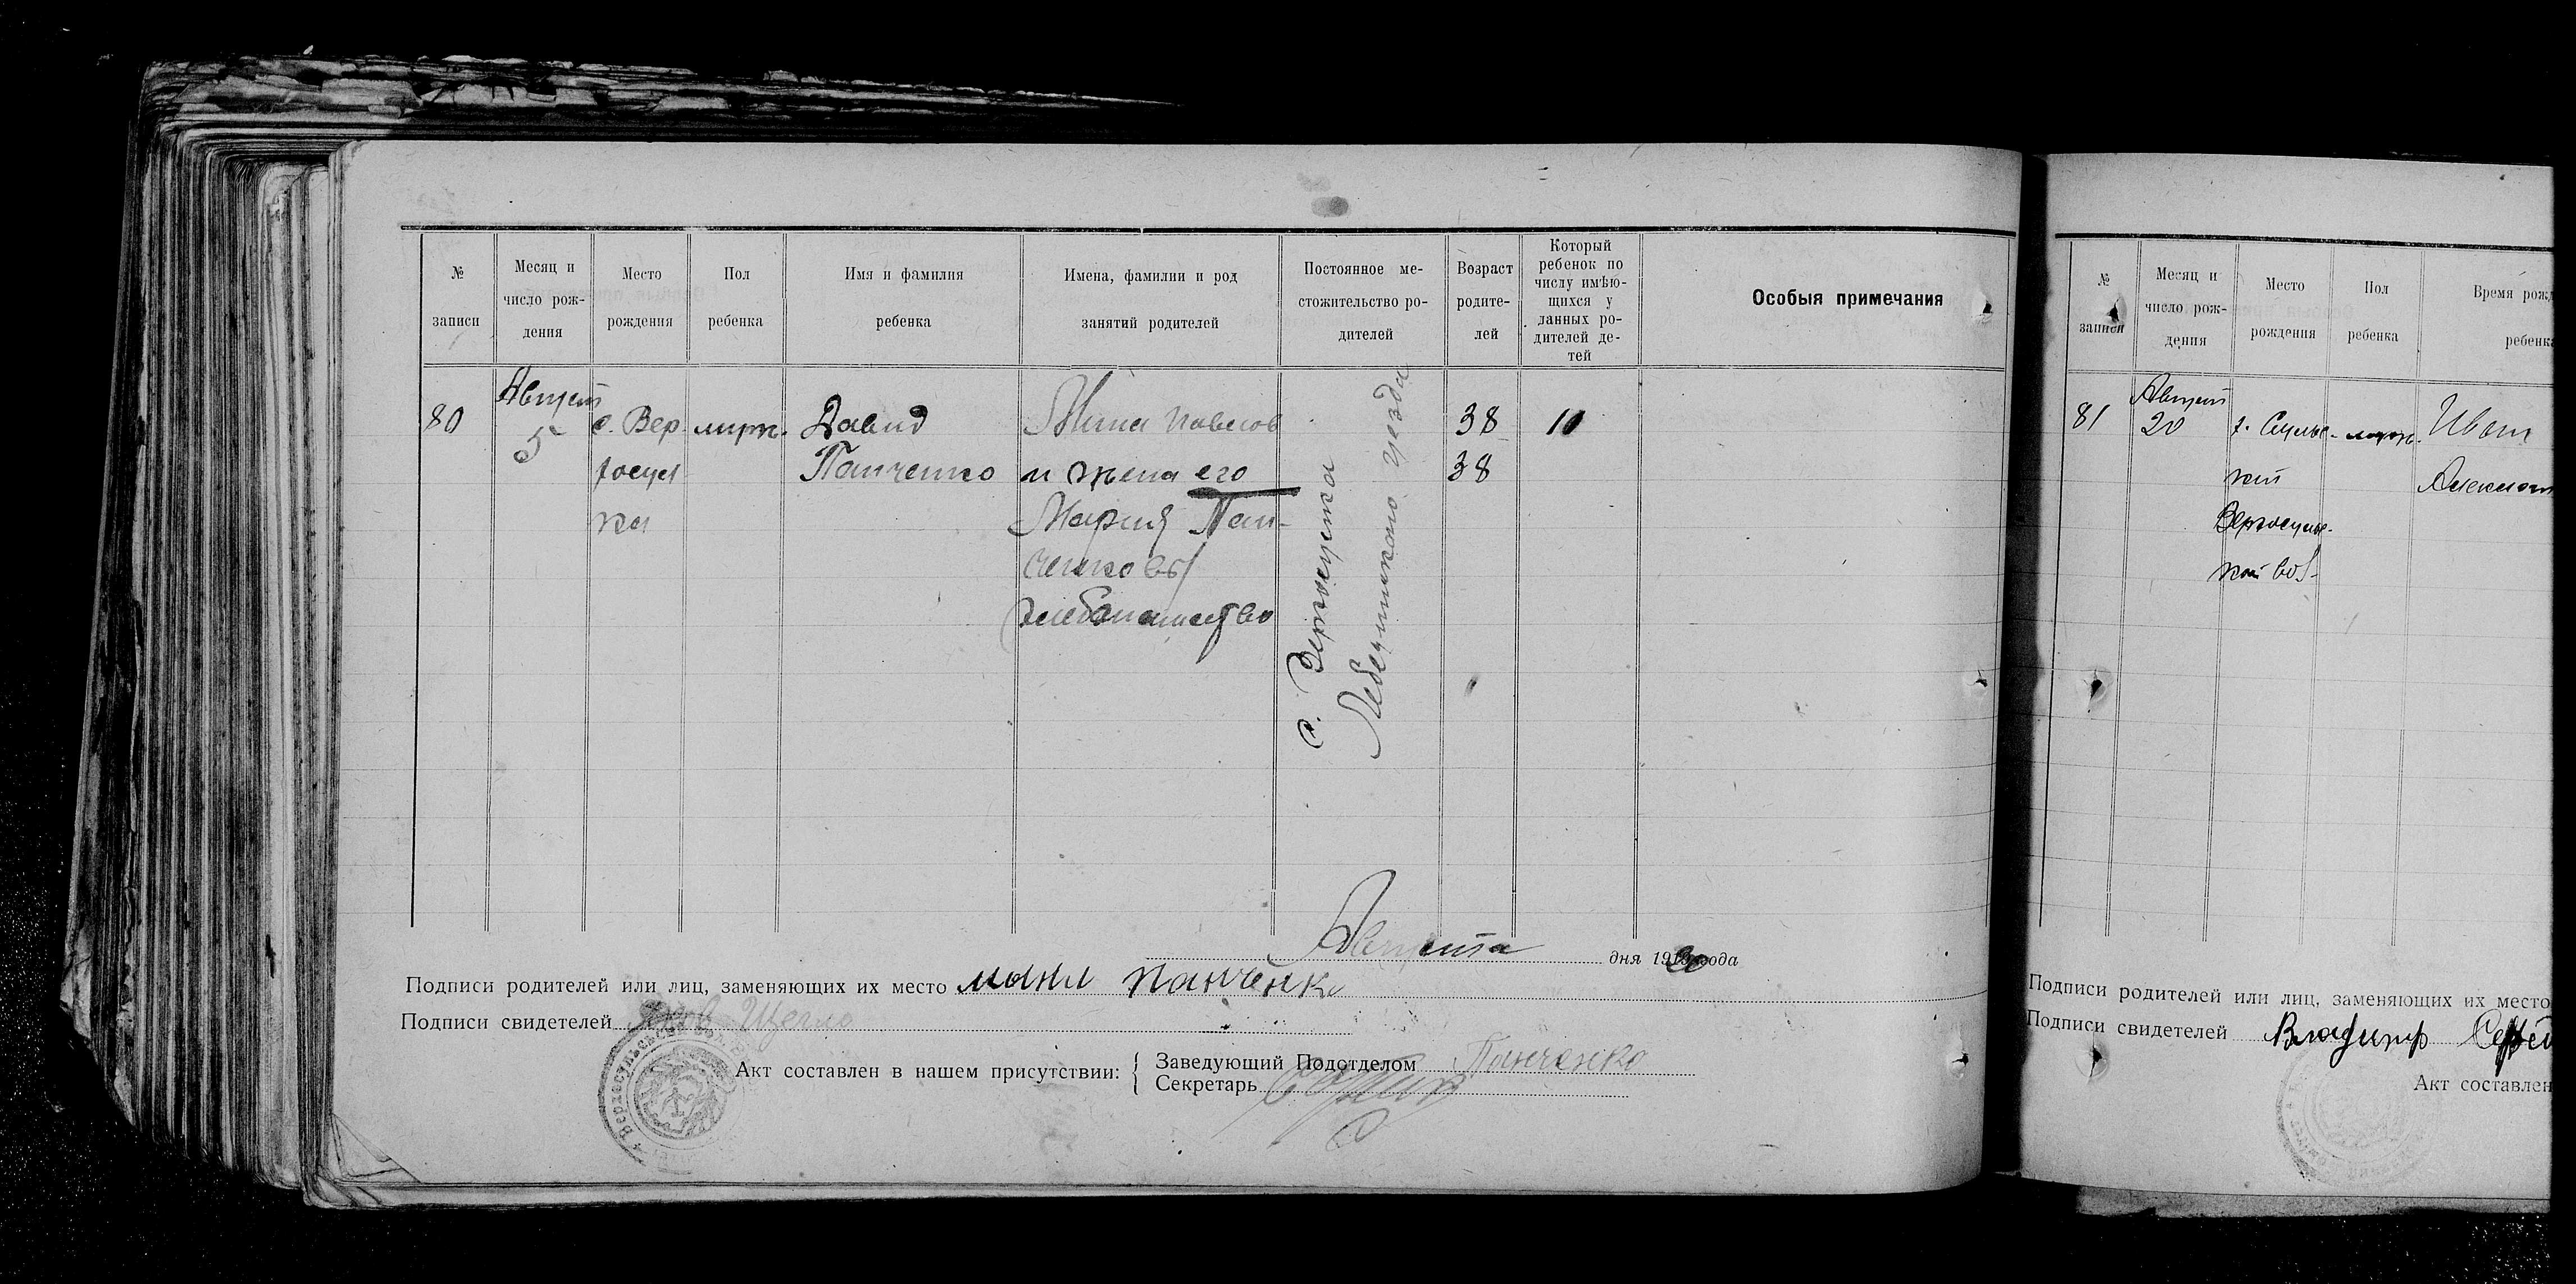 № записи
Месяц и число рож-дения
Место рождения
Пол ребенка
Имя и фамилия ребенка
Имена, фамилии и род занятий родителей
Постоянное ме-стожительство ро-дителей
Возраст родите-лей
Который ребенок по числу имѣю-щихся у данных ро-дителей де-тей
Особыя примечания
80
Август
5
с. Вер
хосул
ка
муж.
Давид
Панченко
Павлов
и жена его
Мария Пан-
ченковы
хлебопашество
с. Верхосулка
Лебединского уезда
38
38
10
Августа дня 1920 года
Подписи родителей или лиц, заменяющих их место Панченко
Подписи свидетелей Щегло
Акт составлен в нашем присутствии:
Заведующий Подотделом Панченко
Секретарь
№ записи
Месяц и число рож-дения
Место рождения
Пол ребенка
Время рожд
ребенка
81
Август
20
х. Сульс-
кий
Верхосуль-
кой вол-
муж.
Иван
Подписи родителей или лиц, заменяющих их место
Подписи свидетелей Владимир
Акт составлен